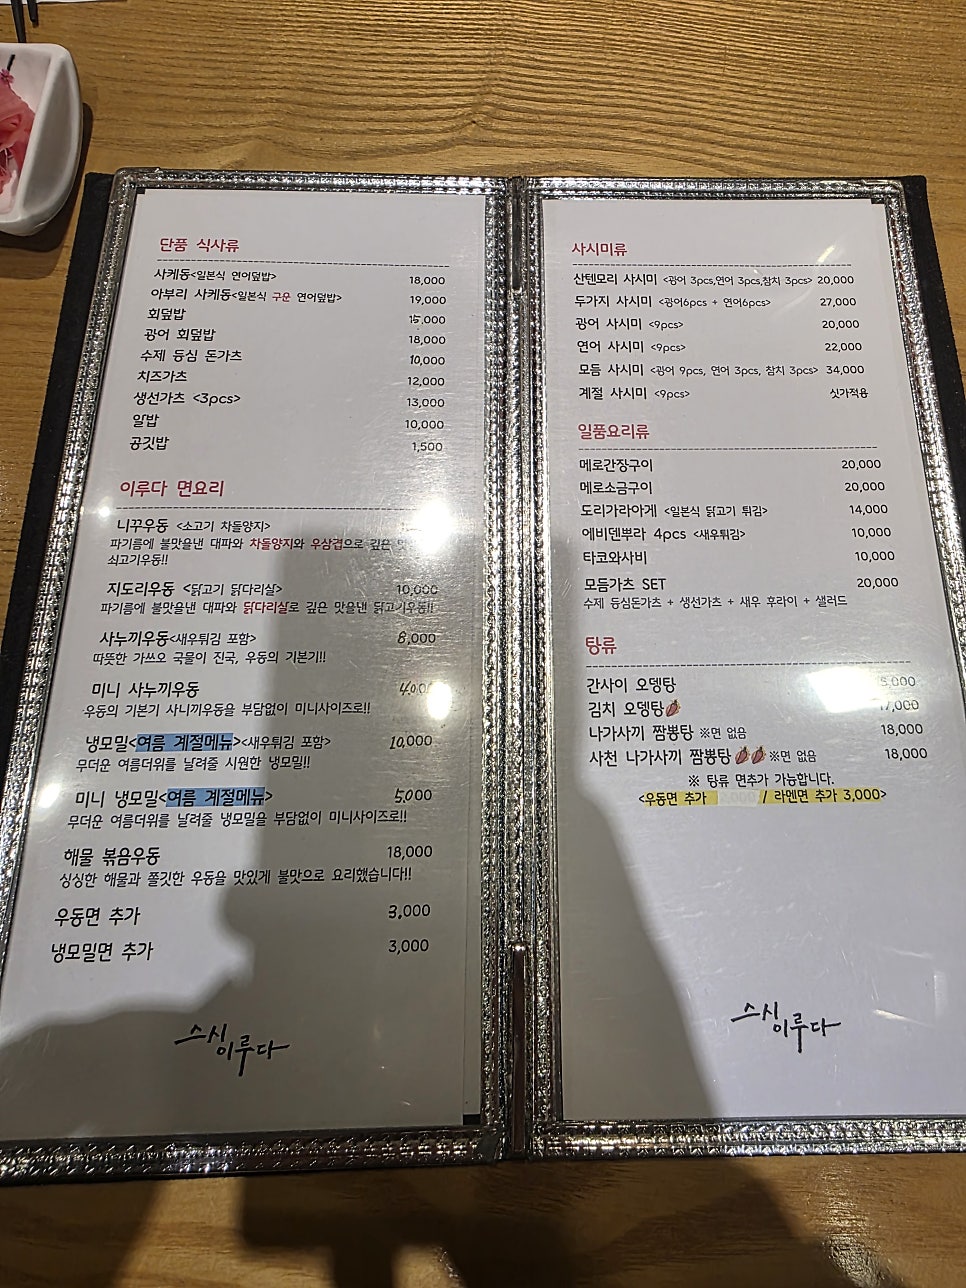 단품 식사류
사케동<일본식 연어덮밥> 18,000
아부리 사케동<일본식 구운 연어덮밥> 19,000
회덮밥 15,000
광어 회덮밥 18,000
수제 등심 돈가츠 10,000
치즈가츠 12,000
생선가츠 <3pcs> 13,000
알밥 10,000
공깃밥 1,500
이루다 면요리
니꾸우동 <소고기 차돌양지>
파기름에 불맛을낸 대파와 차돌양지와 우삼겹으로 깊은
쇠고기우동!!
지도리우동 <닭고기 닭다리살> 10,000
파기름에 불맛을낸 대파와 닭다리살로 깊은 맛을낸 닭고기우동!!
사누끼우동<새우튀김 포함> 8,000
따뜻한 가쓰오 국물이 진국, 우동의 기본기!!
미니 사누끼우동 4,000
우동의 기본기 사니끼우동을 부담없이 미니사이즈로!!
냉모밀<여름 계절메뉴><새우튀김 포함> 10,000
무더운 여름더위를 날려줄 시원한 냉모밀!!
미니 냉모밀<여름 계절메뉴> 5,000
무더운 여름더위를 날려줄 냉모밀을 부담없이 미니사이즈로!!
해물 볶음우동 18,000
싱싱한 해물과 쫄깃한 우동을 맛있게 불맛으로 요리했습니다!!
우동면 추가 3,000
냉모밀면 추가 3,000
스시
이루다
사시미류
산텐모리 사시미 <광어 3pcs,연어 3pcs,참치 3pcs> 20,000
두가지 사시미 <광어6pcs + 연어6pcs> 27,000
광어 사시미 <9pcs> 20,000
연어 사시미 <9pcs> 22,000
모듬 사시미 <광어 9pcs, 연어 3pcs, 참치 3pcs> 34,000
계절 사시미 <9pcs> 싯가적용
일품요리류
메로간장구이 20,000
메로소금구이 20,000
도리가라아게 <일본식 닭고기 튀김> 14,000
에비덴뿌라 4pcs <새우튀김> 10,000
타코와사비 10,000
모듬가츠 SET 20,000
수제 등심돈가츠 + 생선가츠 + 새우 후라이 + 샐러드
탕류
간사이 오뎅탕
김치 오뎅탕 17,000
나가사끼 짬뽕탕 ※면 없음 18,000
사천 나가사끼 짬뽕탕 ※면 없음 18,000
※ 탕류 면추가 가능합니다.
<우동면 추가 / 라멘면 추가 3,000>
스시
이루다